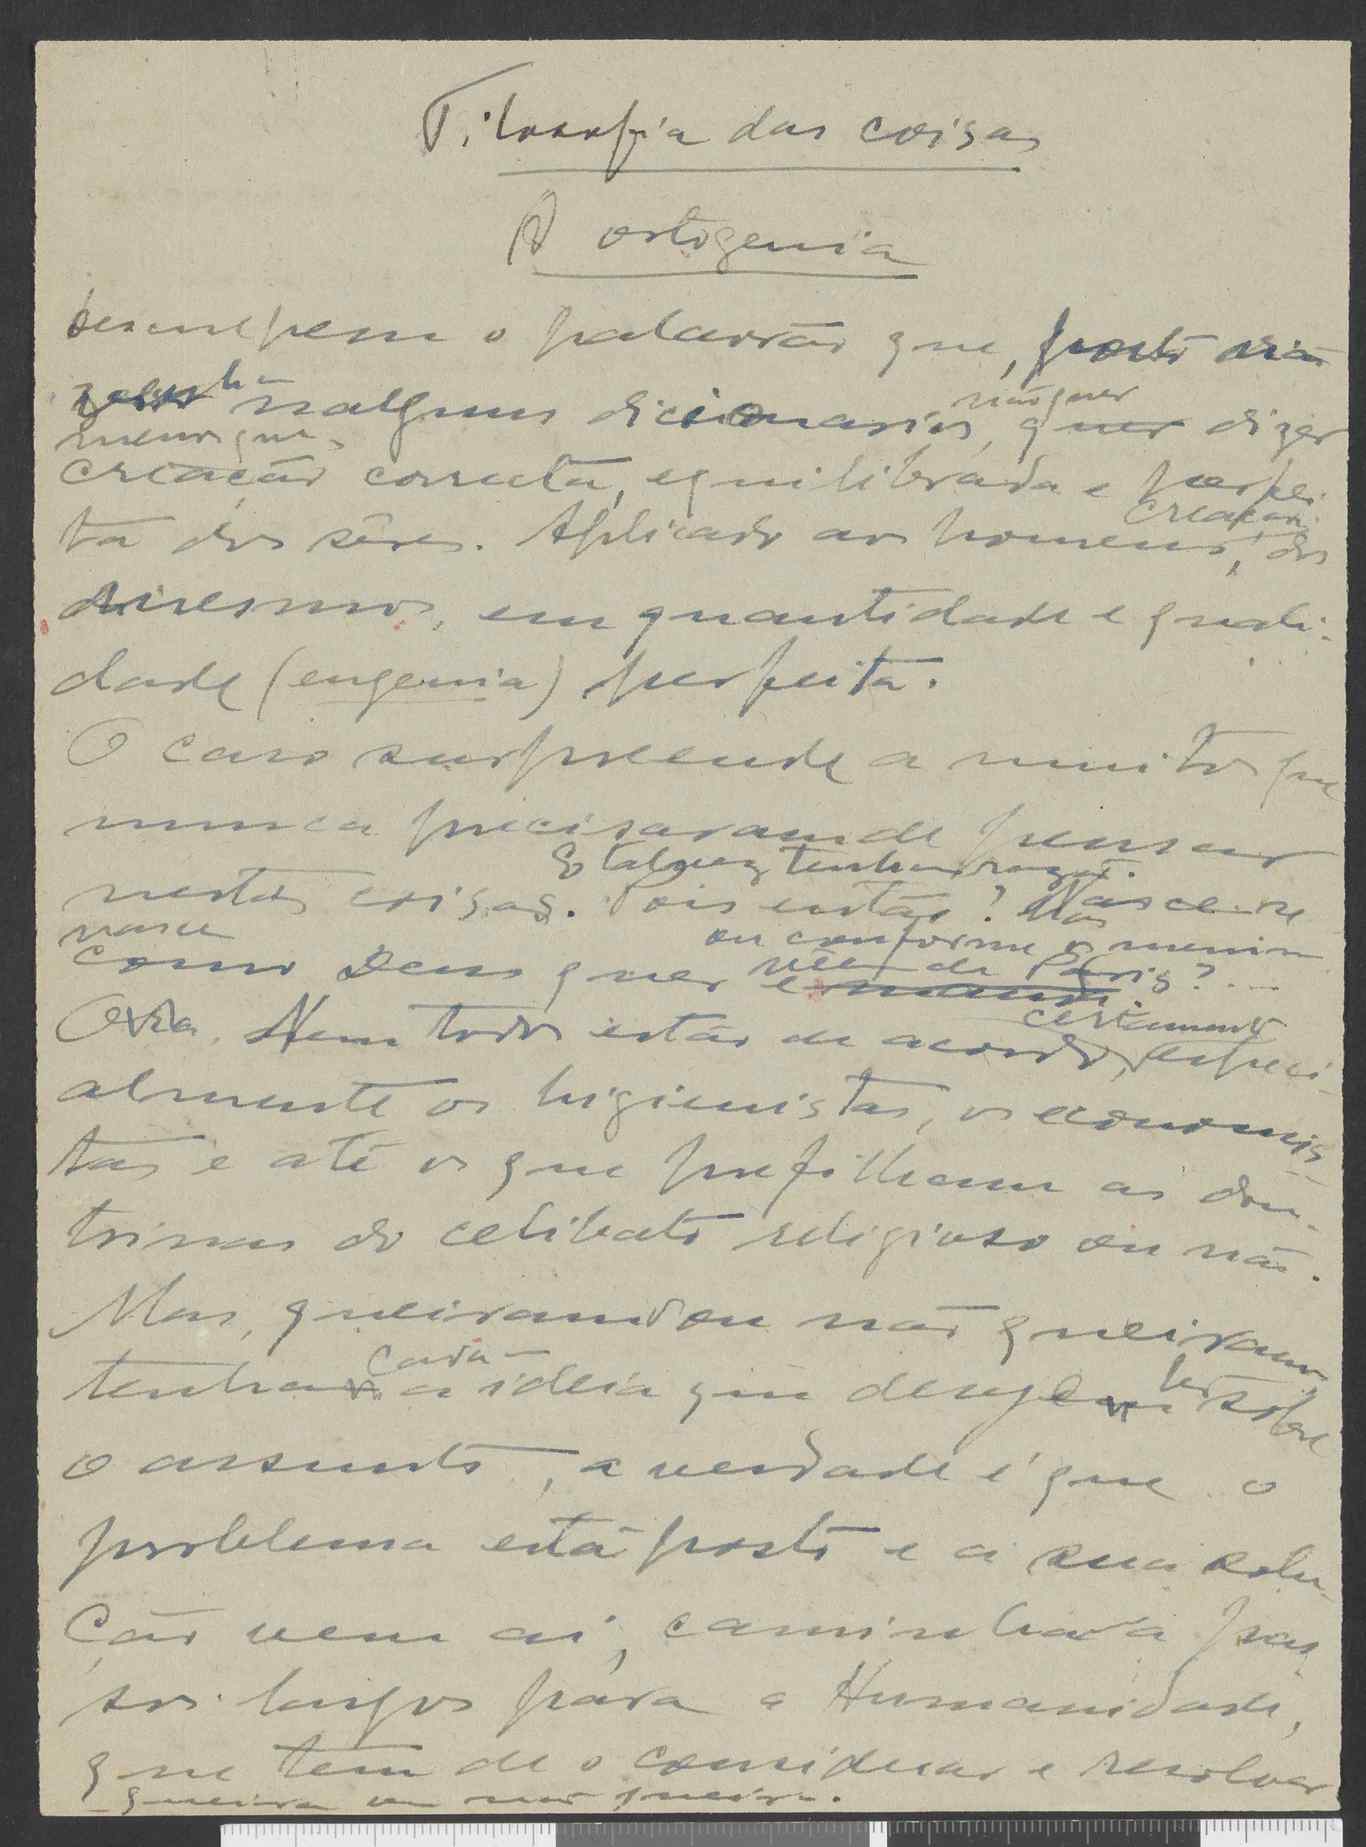 Filosofia das coisas
A ortogenia
Desculpem o palavrão que, posto não
venha nalguns dicionarios, não quer dizer
menos que
creação correcta, equilibrada e perfei-
ta dos sêres. Aplicado aos homens, creação dos
mesmos, em quantidade e quali-
dade (eugenia) perfeita.
O caso surpreende a muitos que
nunca precisaram de pensar
E talvez tenham razão.
nestas coisas. Pois então? Nasce-se
nasce
como Deus quer e
ou conforme os meninos
vêem de Paris?...
Ora. Nem todos estão de acordo, certamente, especi-
almente os higienistas, os economis-
tas e até os que perfilham as dou-
trinas do celibato religioso ou não.
Mas, queiram ou não queiram,
tenha cada a ideia que desejar sobre
o assunto, a verdade é que o
problema está posto e a sua solu-
ção vem aí, caminhada a pas-
sos largos para a Humanidade,
que tem de o considerar e resolver
queira ou não queira.